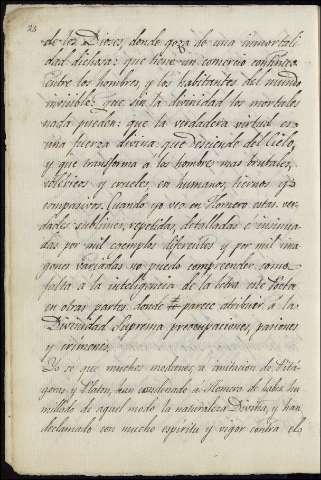 23
de los Dioses, donde goza de una inmortali
dad dichosa: que tiene un comercio continuo
entre los hombres, y los habitantes del mundo
invisible: que sin la divinidad los mortales
nada pueden: que la verdadera virtud es
una fuerza divina que desciende del Cielo,
y que transforma a los hombres mas brutales,
coléricos y crueles, en humanos, tiernos y
compasivos. Cuando yo veo en Homero estas ver
dades sublimes, repetidas, detalladas e insinua
das por mil exemplos diferentes y por mil ima
genes variadas no puedo comprender como
falta a la inteligencia de la letra este Poeta
en otras partes, donde parece atribuir a la
Divinidad Suprema preocupaciones, pasiones
y crimenes.
Yo se que muchos modernos, a imitacion de Pitá
goras y Platon, han condenado a Homero de haber hu
millado de aquel modo la naturaleza Divina, y han
declamado con mucho espiritu y vigor contra el